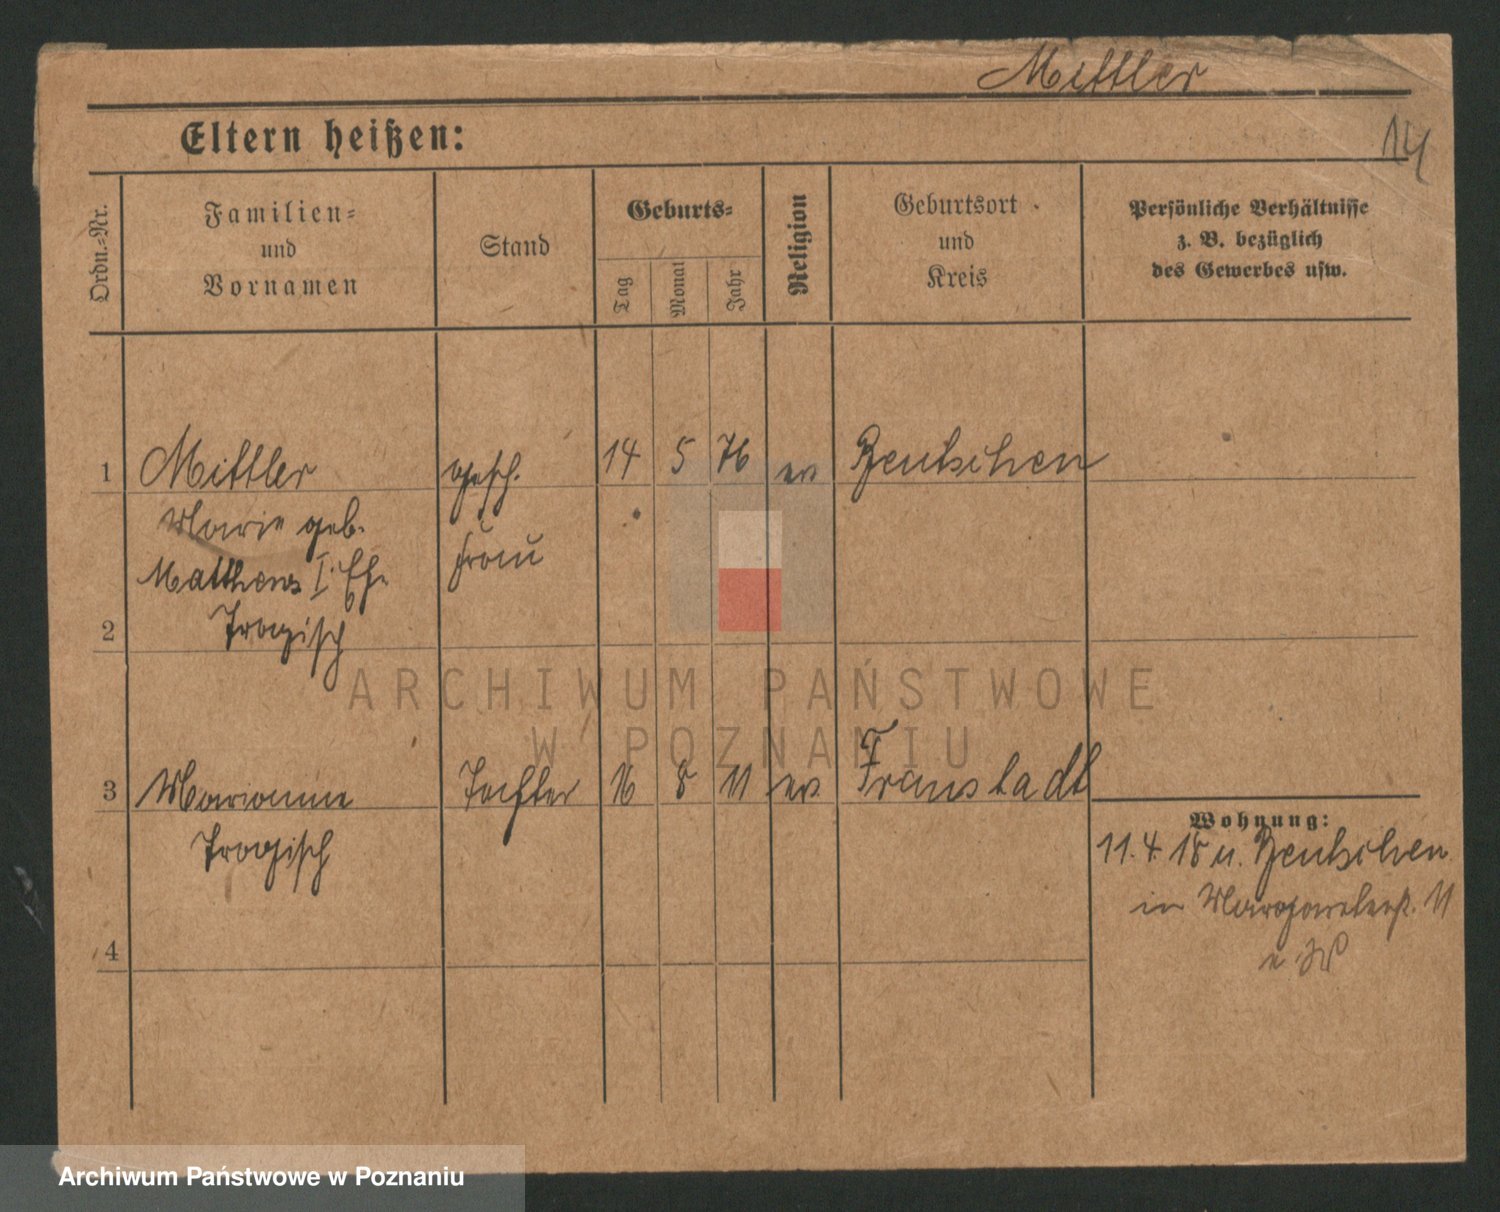 Mittler
Eltern heißen:
14
Ordn.-Nr.
Familien-
und
Vornamen
Stand
Geburts-
Tag
Monat
Jahr
Religion
Geburtsort
und
Kreis
Persönliche Verhältnisse
z. B. bezüglich
des Gewerbes usw.
1 Mittler gesch. 14 5 76 ev Bentschen
Marie geb. Frau
Matthens I. Eh.
2 Trogisch
3 Marianne Tochter 16 8 11 ev Fraustadt
Trogisch
Wohnung:
11.4.18 u. Bentschen
in Margaretenst. 11
4
ARCHIWUM PAŃSTWOWE
W POZNANIU
Archiwum Państwowe w Poznaniu